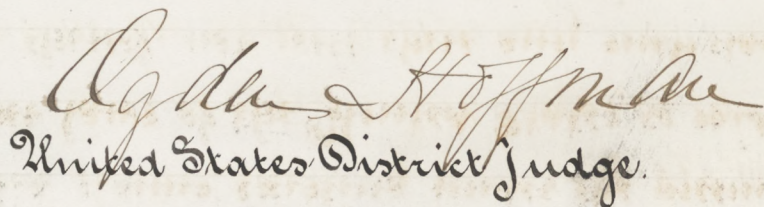 Ogden Hoffman
United States District Judge.